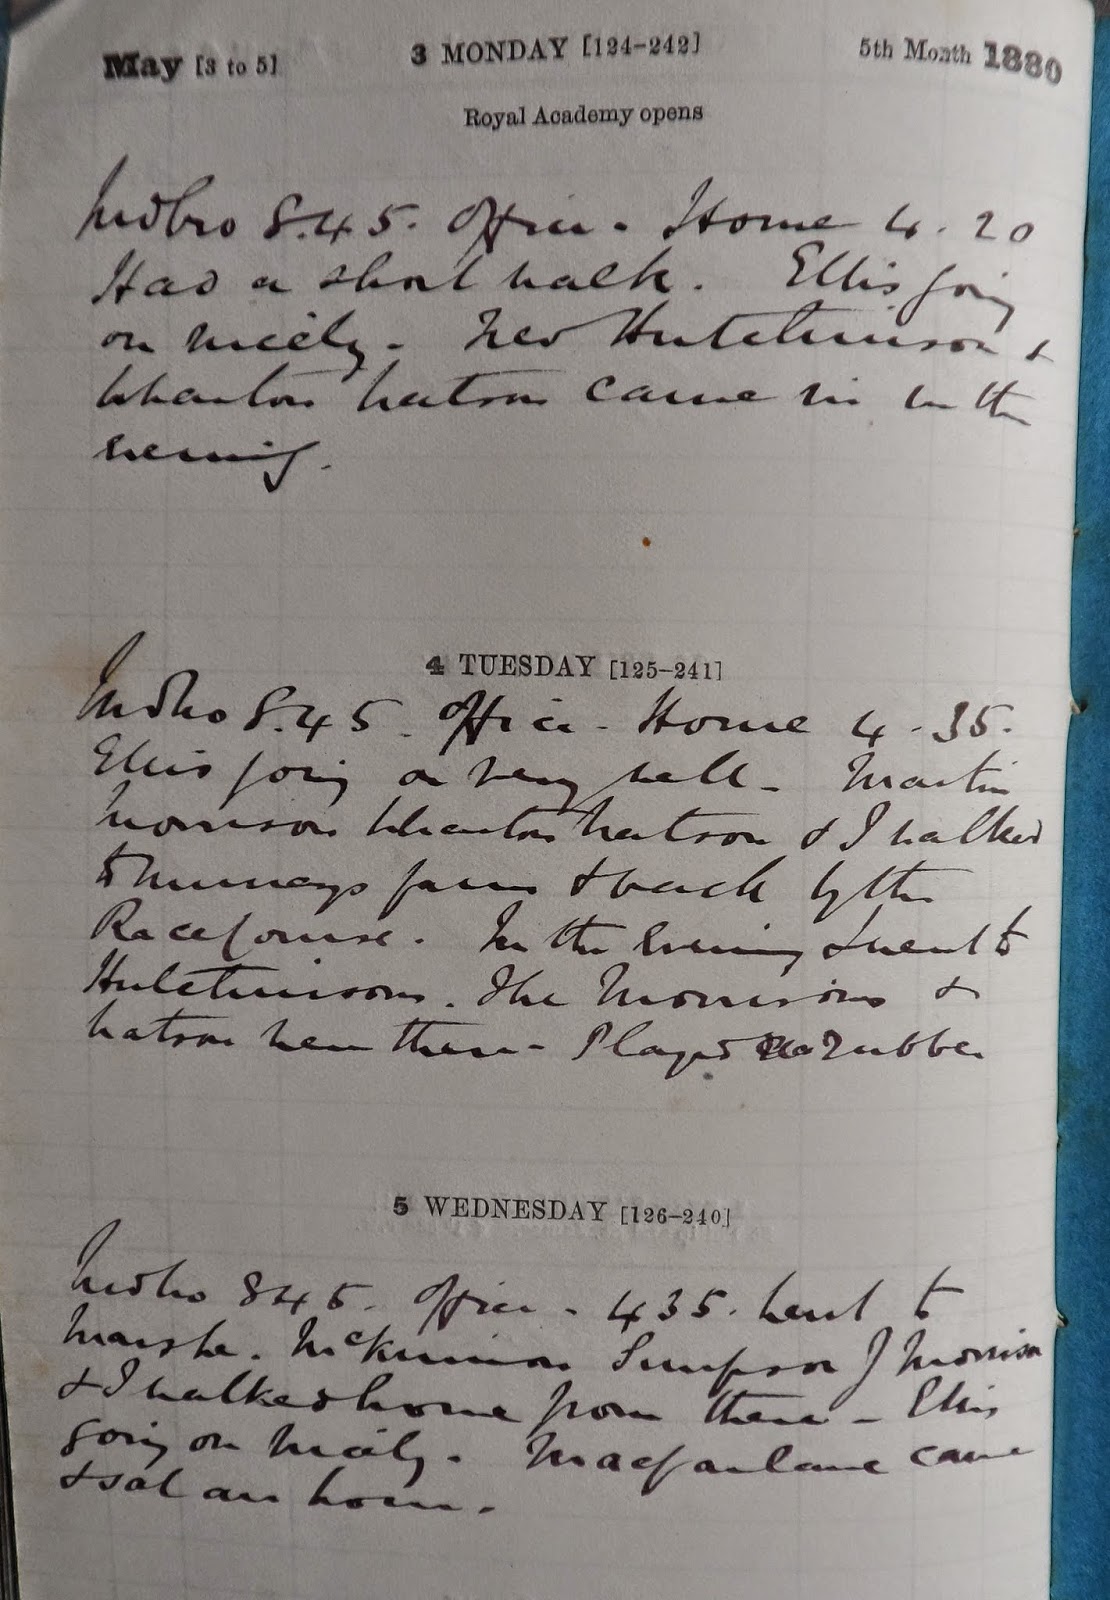 May [3 to 5]
3 MONDAY [124–242]
5th Month 1880
Royal Academy opens
Mdbro 8.45. Office - Home 4.20
Had a short walk. Ellis going
on nicely - Ned Hutchinson &
Wharton Watson came in in the
evening.
4 TUESDAY [125–241]
Mdbro 8.45. Office - Home 4.35.
Ellis going on very well - Martin
Morrison Wharton Watson & I walked
to farm & back by the
Racecourse. In the Evening I went to
Hutchinsons. The Morrisons &
Watson were there - Played a Rubber
5 WEDNESDAY [126–240]
Mdbro 845. Office - 435. Went to
Marske. McKinnon Simpson J Morrison
& I walked home from there - Ellis
going on nicely. Macfarlane came
& sat an hour.